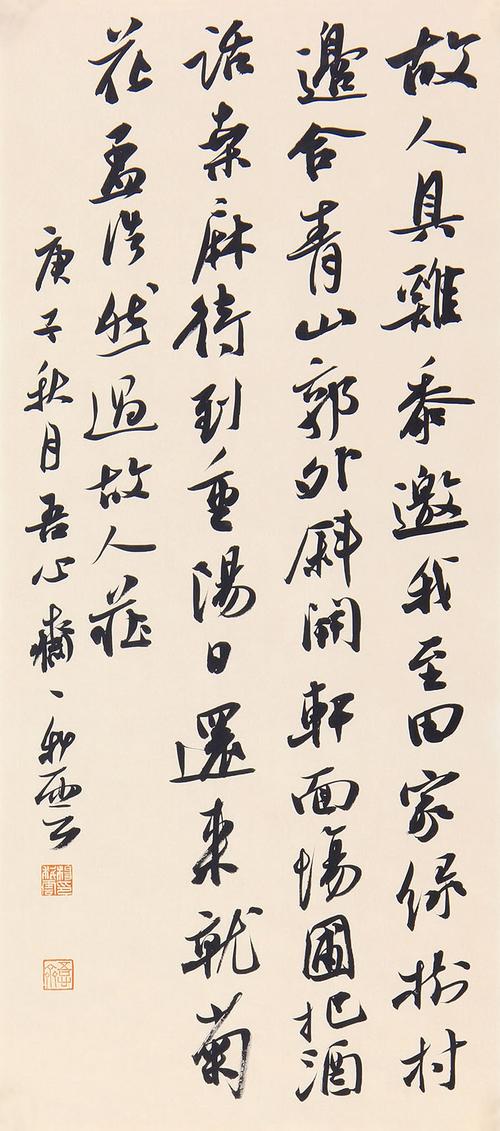 故人具雞黍邀我至田家綠樹村
邊合青山郭外斜開軒面場圃把酒
話桑麻待到重陽日還來就菊
花孟浩然過故人莊
庚子秋月吾心齋